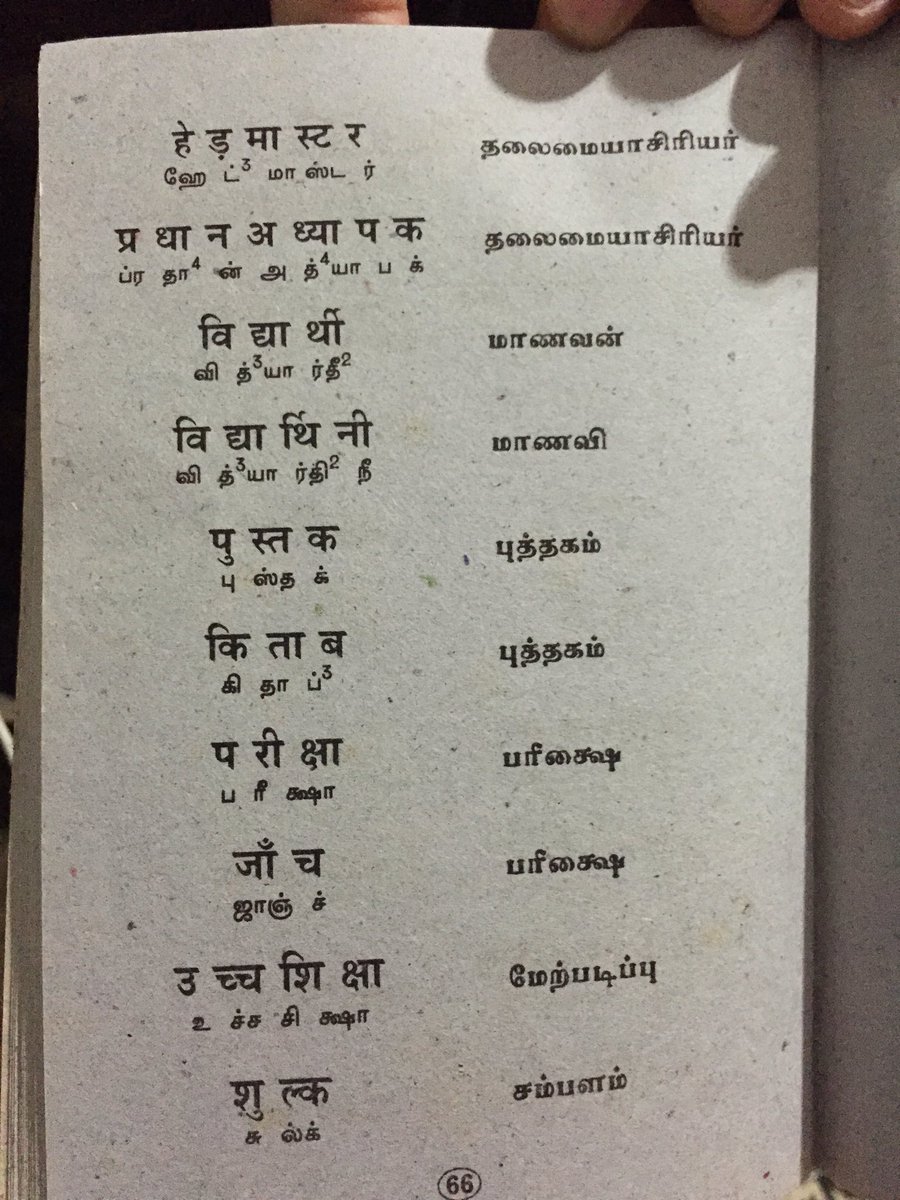 हे ड़ मा स्ट र தலைமையாசிரியர்
ஹே ட்3 மா ஸ்ட ர்
प्र धा न अ ध्या प क தலைமையாசிரியர்
ப்ர தா4 ன் அ த்4யா ப க்
वि द्या र्थी மாணவன்
வி த்3யா ர்தீ2
वि द्या र्थि नी மாணவி
வி த்3யா ர்தி2 நீ
पु स्त क புத்தகம்
பு ஸ்த க்
कि ता ब புத்தகம்
கி தா ப்3
प री क्षा பரீக்ஷை
ப ரீ க்ஷா
जाँ च பரீக்ஷை
ஜாஞ் ச்
उ च्च शि क्षा மேற்படிப்பு
உ ச்ச சி க்ஷா
शु ल्क சம்பளம்
சு ல்க்
66